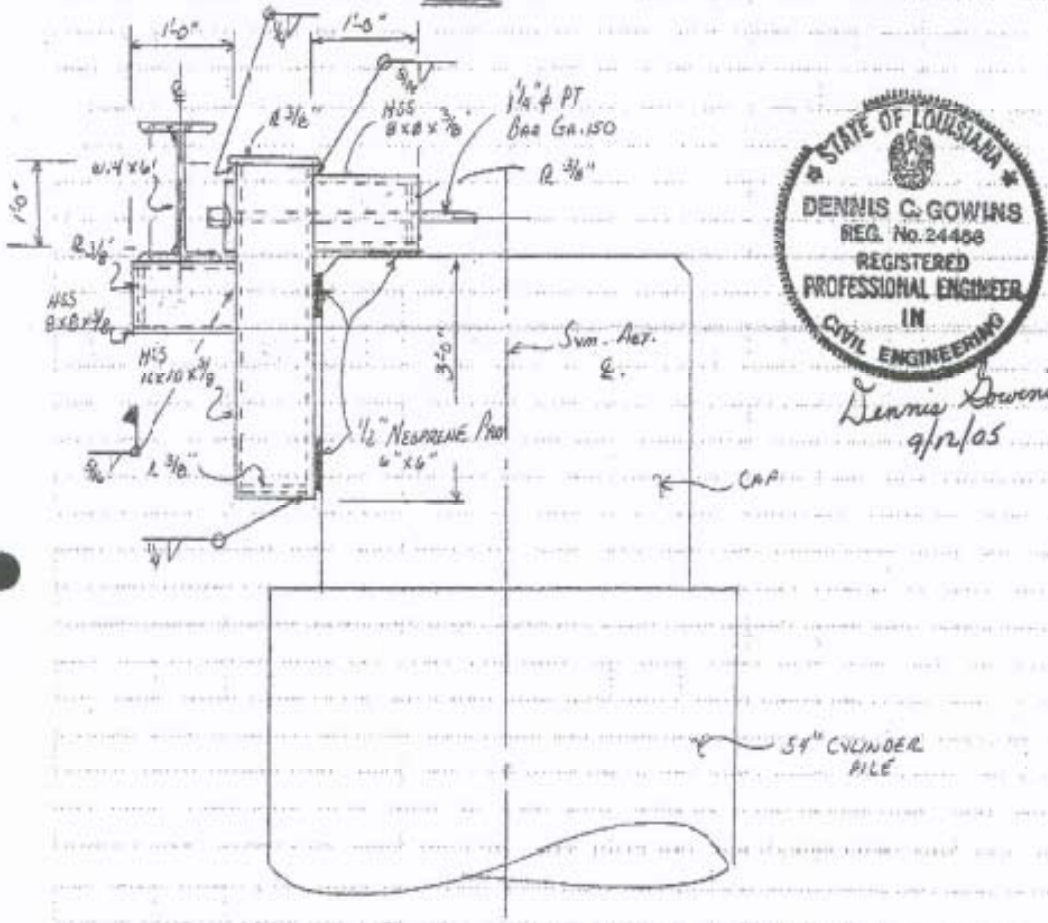 1'-0"
1'-0"
1/4
5/16
HSS
8x8x3/8
1 1/4" ϕ PT
BAR GR. 150
PL 3/8"
PL 3/8"
1'-0"
PL 3/8"
HSS
8x8x3/8
HSS
3'-0"
SYM. ABT.
℄
1/2" NEOPRENE PAD
6" x 6"
5/16
PL 3/8"
1/4
CAP
54" CYLINDER
PILE
STATE OF LOUISIANA
DENNIS C. GOWINS
REG. No. 24466
REGISTERED
PROFESSIONAL ENGINEER
IN
CIVIL ENGINEERING
Dennis Gowins
9/12/05